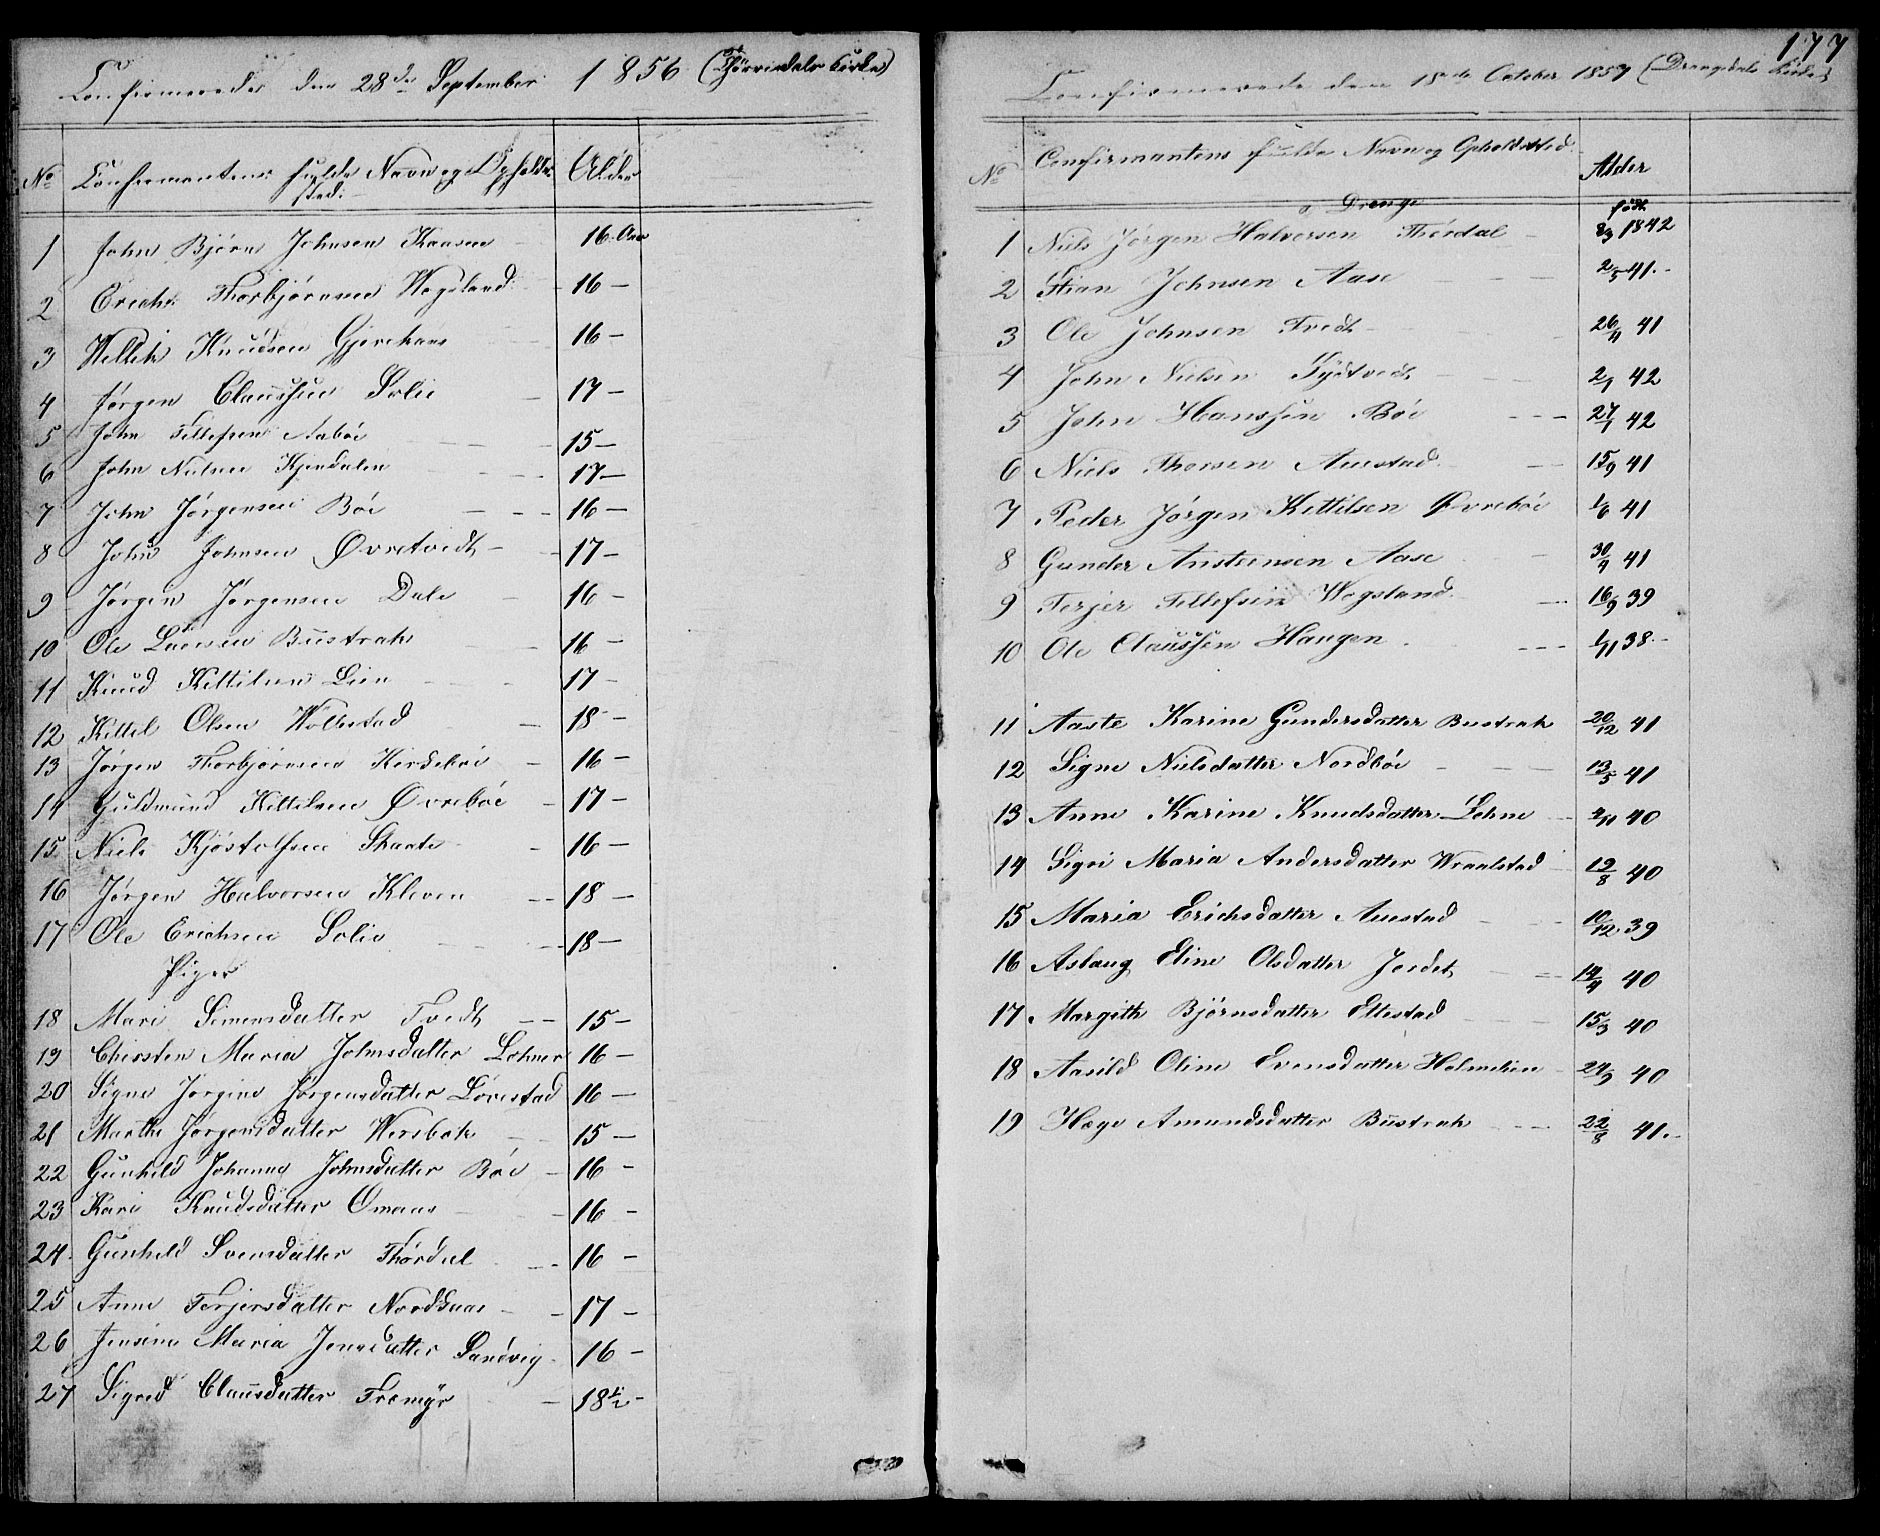 Confirmerede den 28de September 1856 (Tørrisdals Kirke)
No Confirmantens fulde Navn og Opholds- Alder
sted.
1 John Bjørn Johnsen Kaasen 16 Aar
2 Erich Thorbjørnsen Wegsland 16 —
3 Wetle Knudsen 16 —
4 Jørgen Claussen Solie 17 —
5 John Tellefsen Aabøe 15 —
6 John Nielsen Kjendalen 17 —
7 John Jørgensen Bøe 16 —
8 John Johnsen Øvretvedt 17 —
9 Jørgen Jørgensen Dale 16 —
10 Ole Bustrak 16 —
11 Knud Kittilsen Lien 17 —
12 Kittil Olsen Wollestad 18 —
13 Jørgen Thorbjørnsen Kirkebøe 16 —
14 Guldmund Kittilsen Øvrebøe 17 —
15 Niels Kjøstolfsen Skaate 16 —
16 Jørgen Halvorsen Kleven 18 —
17 Ole Erichsen Solie 18 —
Piger
18 Mari Simensdatter Tvedt 15 —
19 Chirsten Maria Johnsdatter Lohne 16 —
20 Signe Jørgine Jørgensdatter Lørestad 16 —
21 Marthe Jørgensdatter Wersbak 15 —
22 Gunhild Johanne Johnsdatter Bøe 16 —
23 Kari Knudsdatter Omaas 16 —
24 Gunhild Svensdatter Thørdal 16 —
25 Anne Terjersdatter Nordbaas 17 —
26 Jensine Maria Jensdatter Sandvig 16 —
27 Sigrid Clausdatter Tromyr 18 1/2 —
177
Confirmerede den 18de October 1857 (Drangedals Kirke)
No Confirmantens fulde Navn og Opholdssted. Alder
Drenge født
1 Niels Jørgen Halvorsen Thørdal 8/3 1842
2 Stian Johnsen Aase 2/5 41
3 Ole Johnsen Tvedt 26/11 41
4 John Nielsen Sydtvedt 2/1 42
5 John Hanssen Bøe 27/1 42
6 Niels Thorsen Austad 15/9 41
7 Peder Jørgen Kittilsen Øvrebøe 1/6 41
8 Gunder Austensen Aase 30/4 41
9 Terjer Tellefsen Wegsland 16/9 39
10 Ole Claussen Haugen 1/11 38
11 Aaste Karine Gundersdatter Bustrak 20/12 41
12 Signe Nielsdatter Nordbøe 13/5 41
13 Anne Karine Knudsdatter Lohne 2/11 40
14 Sigri Maria Andersdatter Wraalstad 19/8 40
15 Maria Erichsdatter Austad 10/12 39
16 Aslaug Eline Olsdatter Jordet 14/4 40
17 Margith Bjørnsdatter Ettestad 15/3 40
18 Aasild Oline Evensdatter Holmelien 24/9 40
19 Hæge Amundsdatter Bustrak 22/8 41